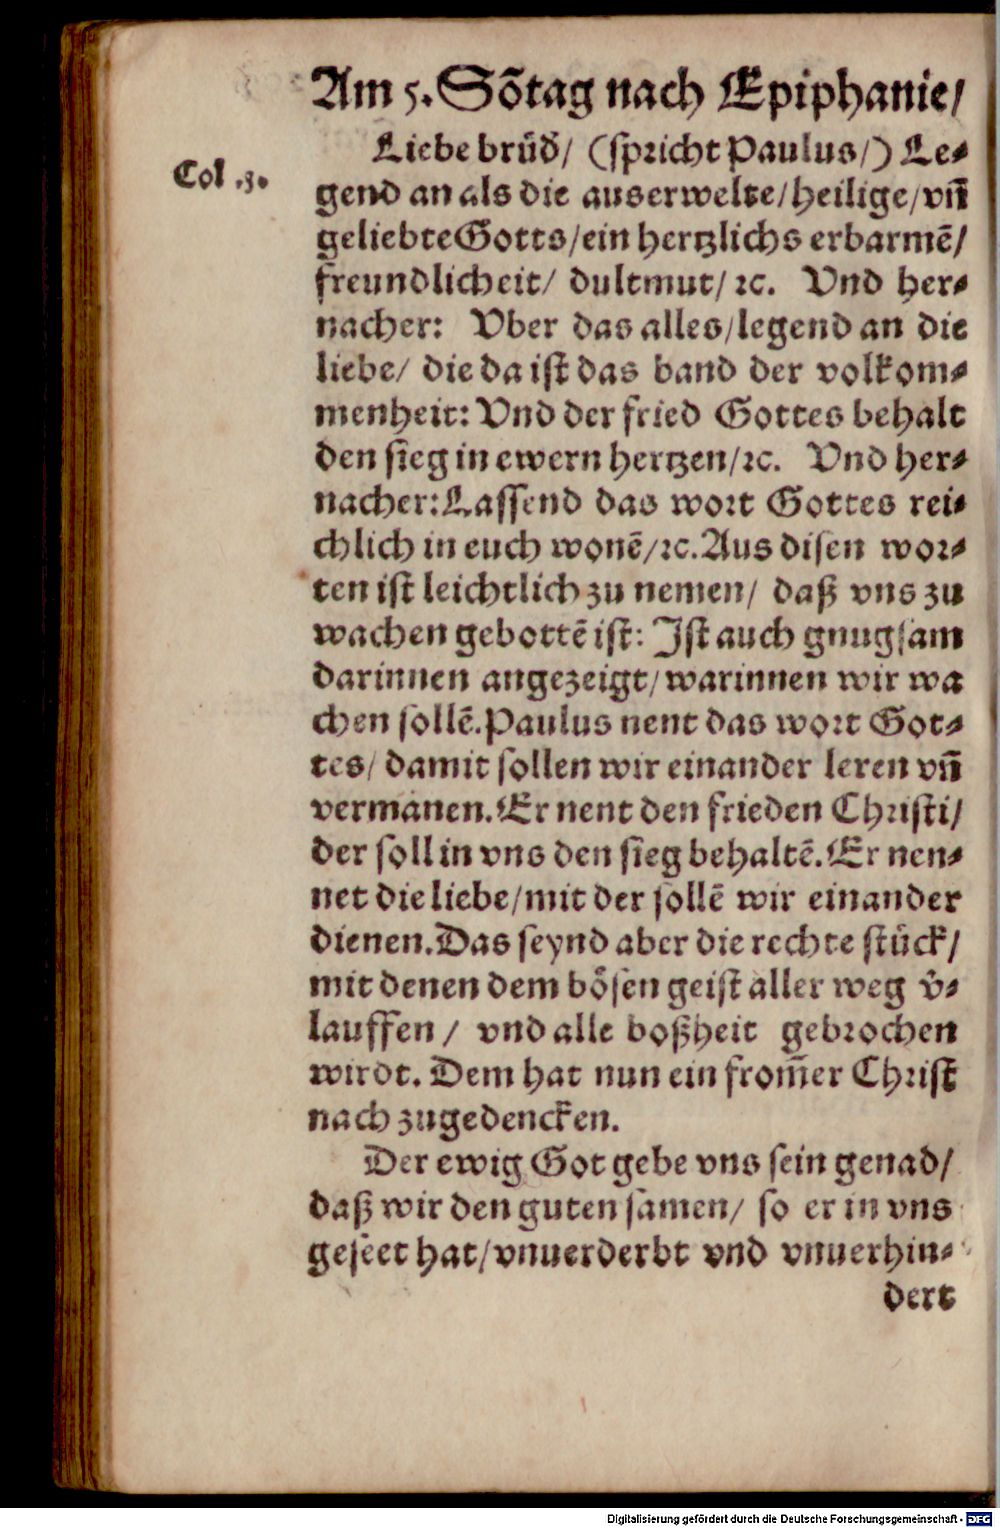 Am 5. Sõtag nach Epiphanie/
Col .3.
Liebe brüd̃/ (spricht Paulus/) Le⸗
gend an als die auserwelte/heilige/vñ
geliebte Gotts/ein hertzlichs erbarmẽ/
freundlicheit/ dultmut/ ꝛc. Vnd her⸗
nacher: Vber das alles/legend an die
liebe/ die da ist das band der volkom⸗
menheit: Vnd der fried Gottes behalt
den sieg in ewern hertzen/ꝛc. Vnd her⸗
nacher: Lassend das wort Gottes rei⸗
chlich in euch wonẽ/ꝛc. Aus disen wor⸗
ten ist leichtlich zu nemen/ daß vns zu
wachen gebottẽ ist: Ist auch gnugsam
darinnen angezeigt/warinnen wir wa
chen sollẽ. Paulus nent das wort Got⸗
tes/ damit sollen wir einander leren vñ
vermanen. Er nent den frieden Christi/
der soll in vns den sieg behaltẽ. Er nen⸗
net die liebe/mit der sollẽ wir einander
dienen. Das seynd aber die rechte stück/
mit denen dem bösen geist aller weg v̈⸗
lauffen/ vnd alle boßheit gebrochen
wirdt. Dem hat nun ein from̃er Christ
nach zugedencken.
Der ewig Got gebe vns sein genad/
daß wir den guten samen/ so er in vns
geseet hat/vnuerderbt vnd vnuerhin⸗
dert
Digitalisierung gefördert durch die Deutsche Forschungsgemeinschaft - DFG